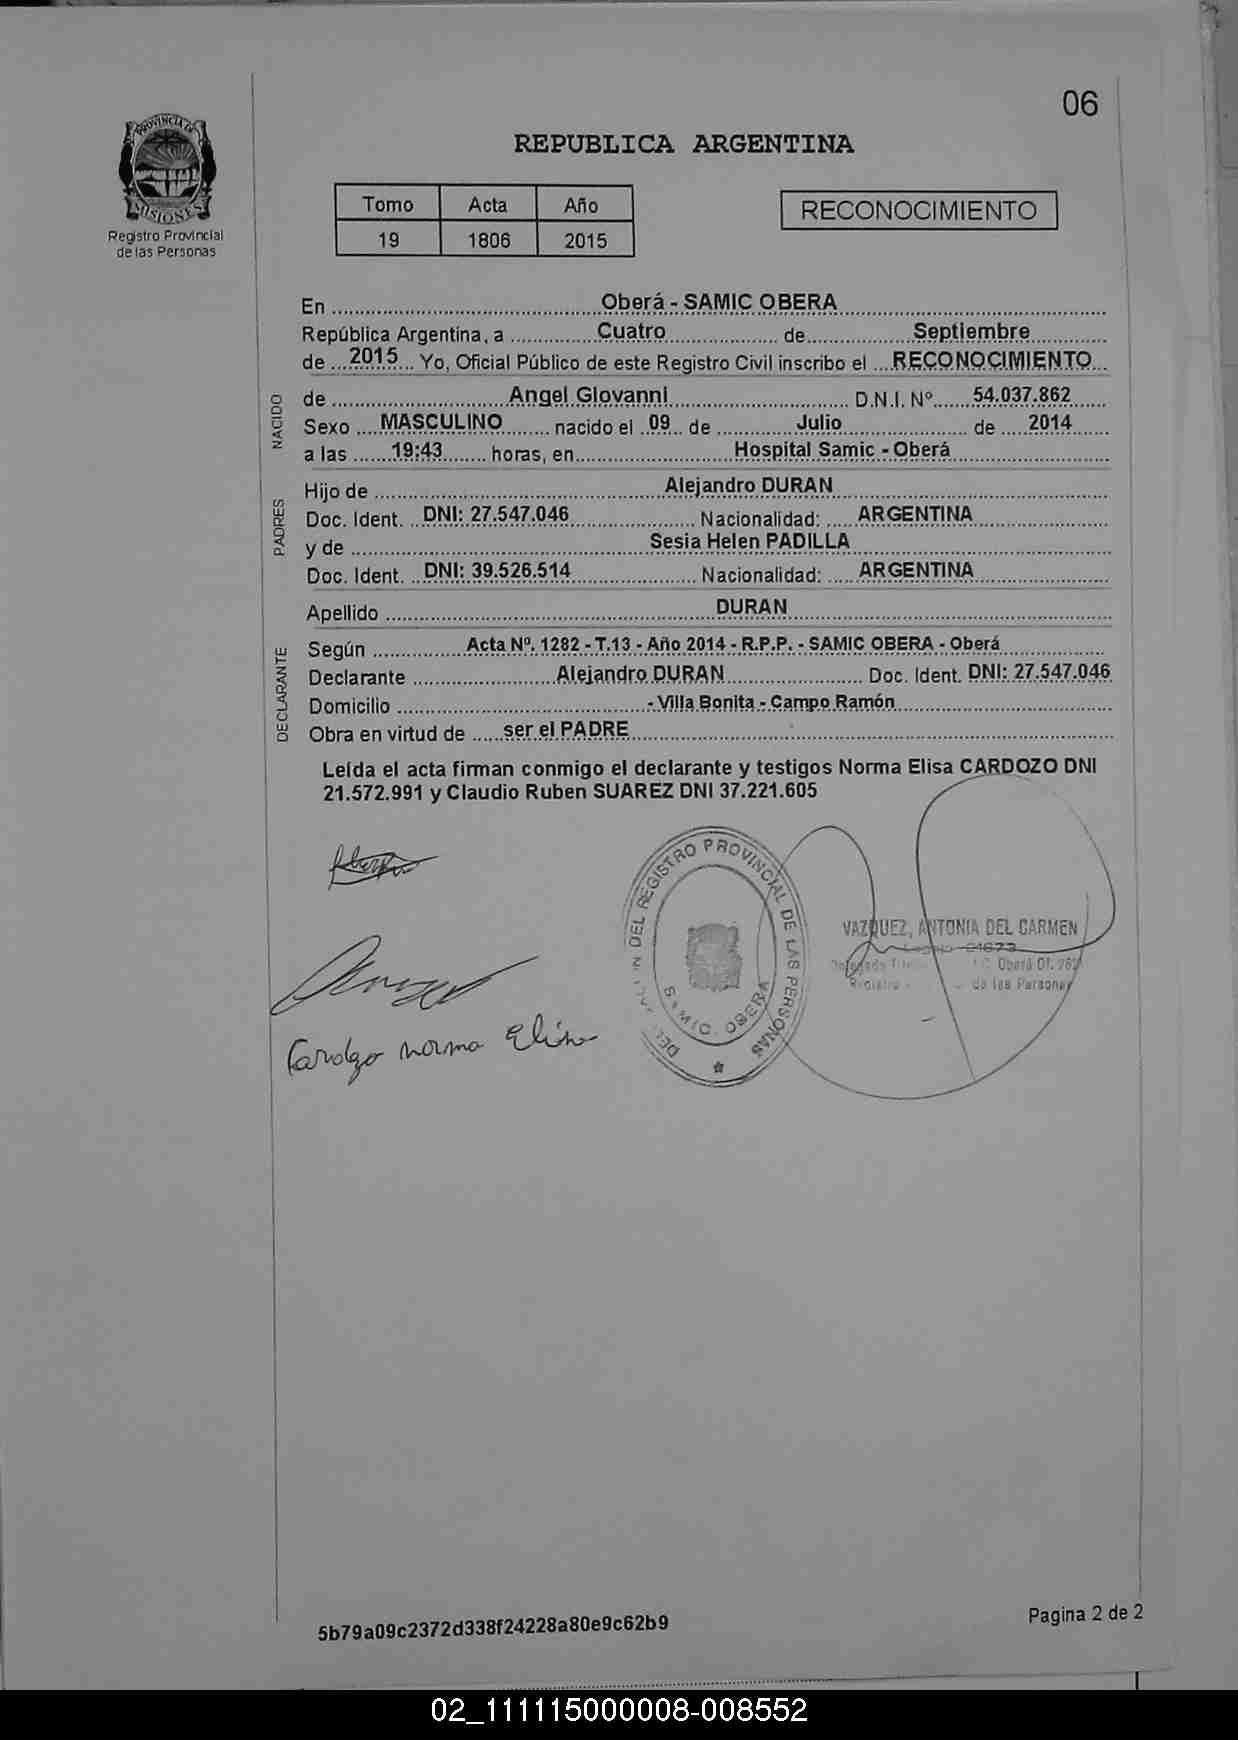 06
PROVINCIA DE
MISIONES
Registro Provincial
de las Personas
REPUBLICA ARGENTINA
Tomo Acta Año
19 1806 2015
RECONOCIMIENTO
En Oberá - SAMIC OBERA
República Argentina, a Cuatro de Septiembre
de 2015 Yo, Oficial Público de este Registro Civil inscribo el RECONOCIMIENTO
NACIDO
de Angel Giovanni D.N.I. Nº 54.037.862
Sexo MASCULINO nacido el 09 de Julio de 2014
a las 19:43 horas, en Hospital Samic - Oberá
PADRES
Hijo de Alejandro DURAN
Doc. Ident. DNI: 27.547.046 Nacionalidad: ARGENTINA
y de Sesia Helen PADILLA
Doc. Ident. DNI: 39.526.514 Nacionalidad: ARGENTINA
Apellido DURAN
DECLARANTE
Según Acta Nº. 1282 - T.13 - Año 2014 - R.P.P. - SAMIC OBERA - Oberá
Declarante Alejandro DURAN Doc. Ident. DNI: 27.547.046
Domicilio - Villa Bonita - Campo Ramón
Obra en virtud de ser el PADRE
Leída el acta firman conmigo el declarante y testigos Norma Elisa CARDOZO DNI
21.572.991 y Claudio Ruben SUAREZ DNI 37.221.605
DEL REGISTRO PROVINCIAL DE LAS PERSONAS
SAMIC. OBERA
VAZQUEZ, ANTONIA DEL CARMEN
Oberá Of.
de las Personas
Cardozo norma Elisa
5b79a09c2372d338f24228a80e9c62b9
Pagina 2 de 2
02_111115000008-008552